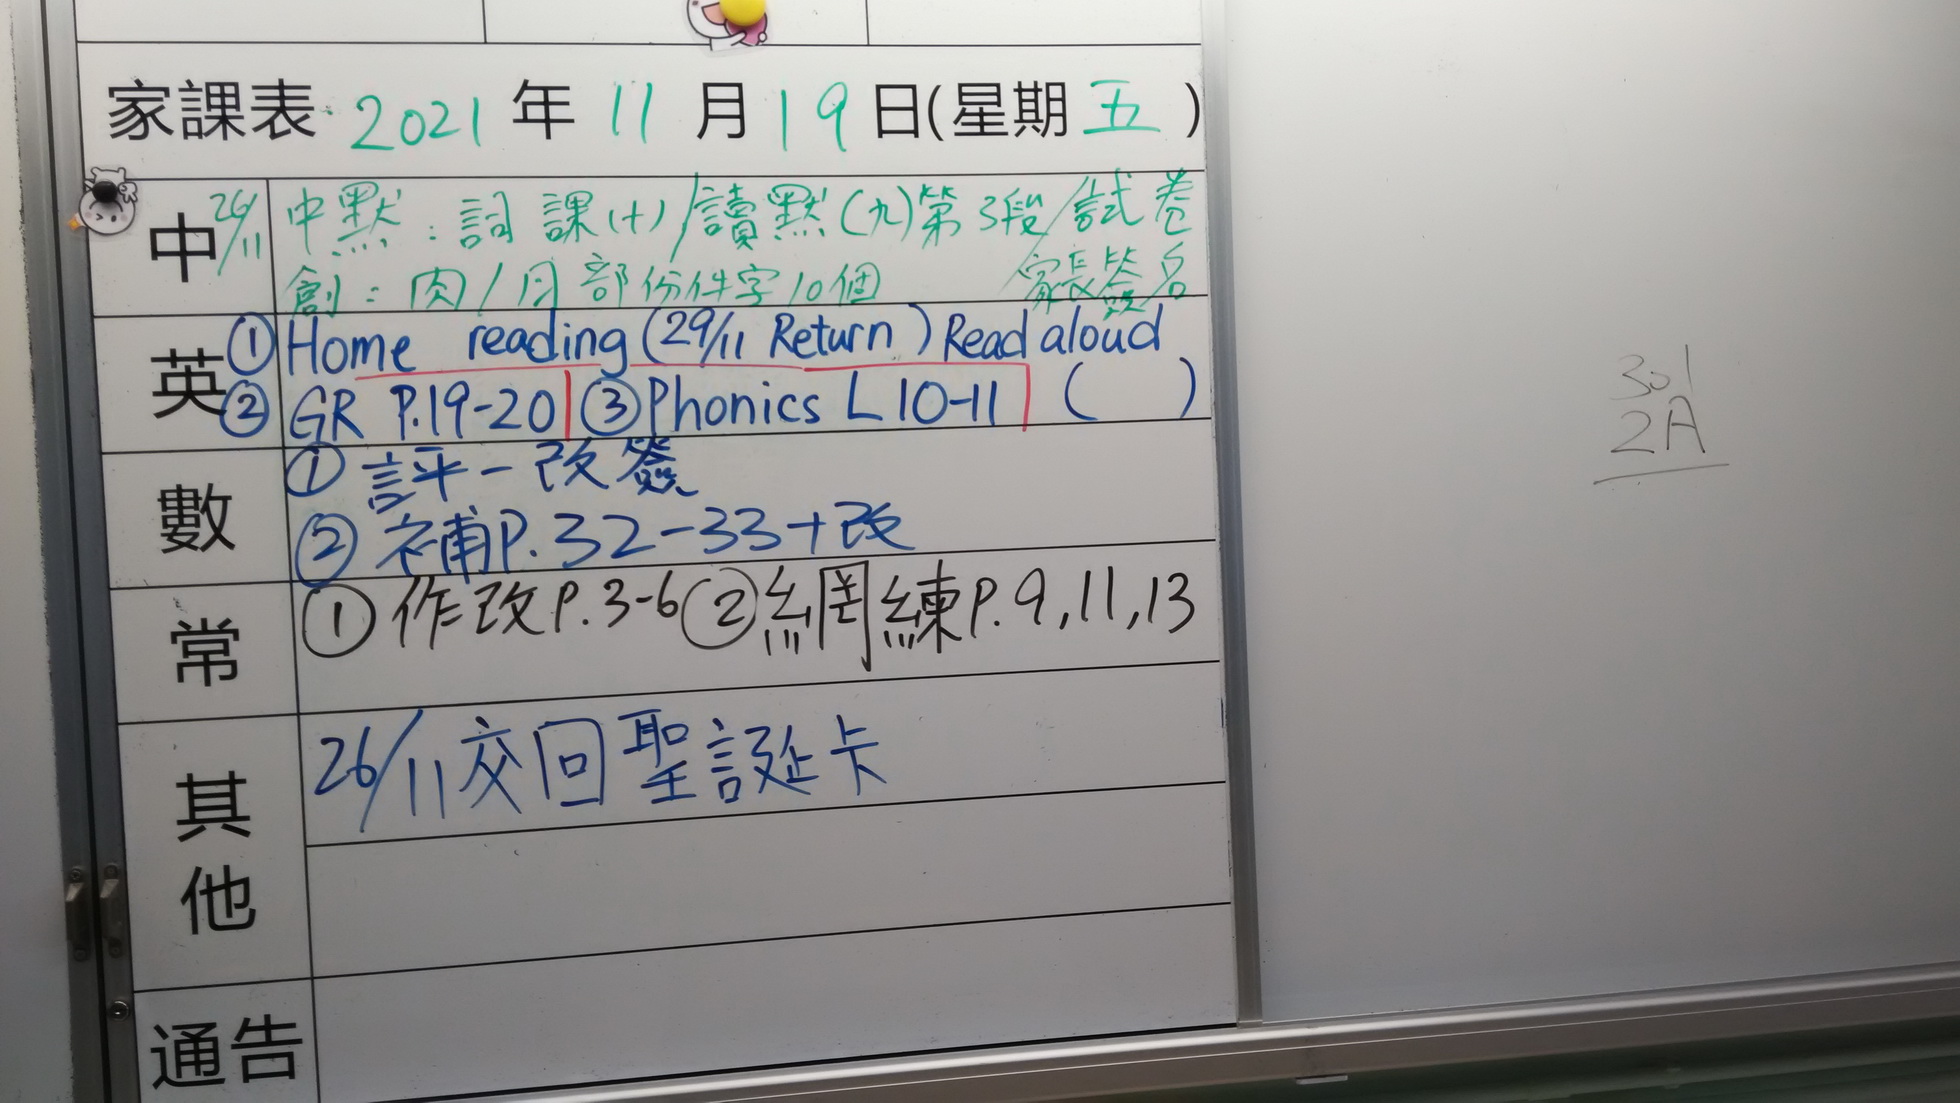 家課表 2021 年 11 月 19 日(星期 五 )
中 26/11 中默:詞課(十)/讀默(九)第3段/試卷
創:肉/月部份件字10個 家長簽名
英 ① Home reading (29/11 Return) Read aloud
② GR P.19-20 | ③ Phonics L10-11 | ( )
數 ① 評一改簽
② 補P.32-33+改
常 ① 作改P.3-6 ② 網練P.9,11,13
其他 26/11交回聖誕卡
通告
301
2A